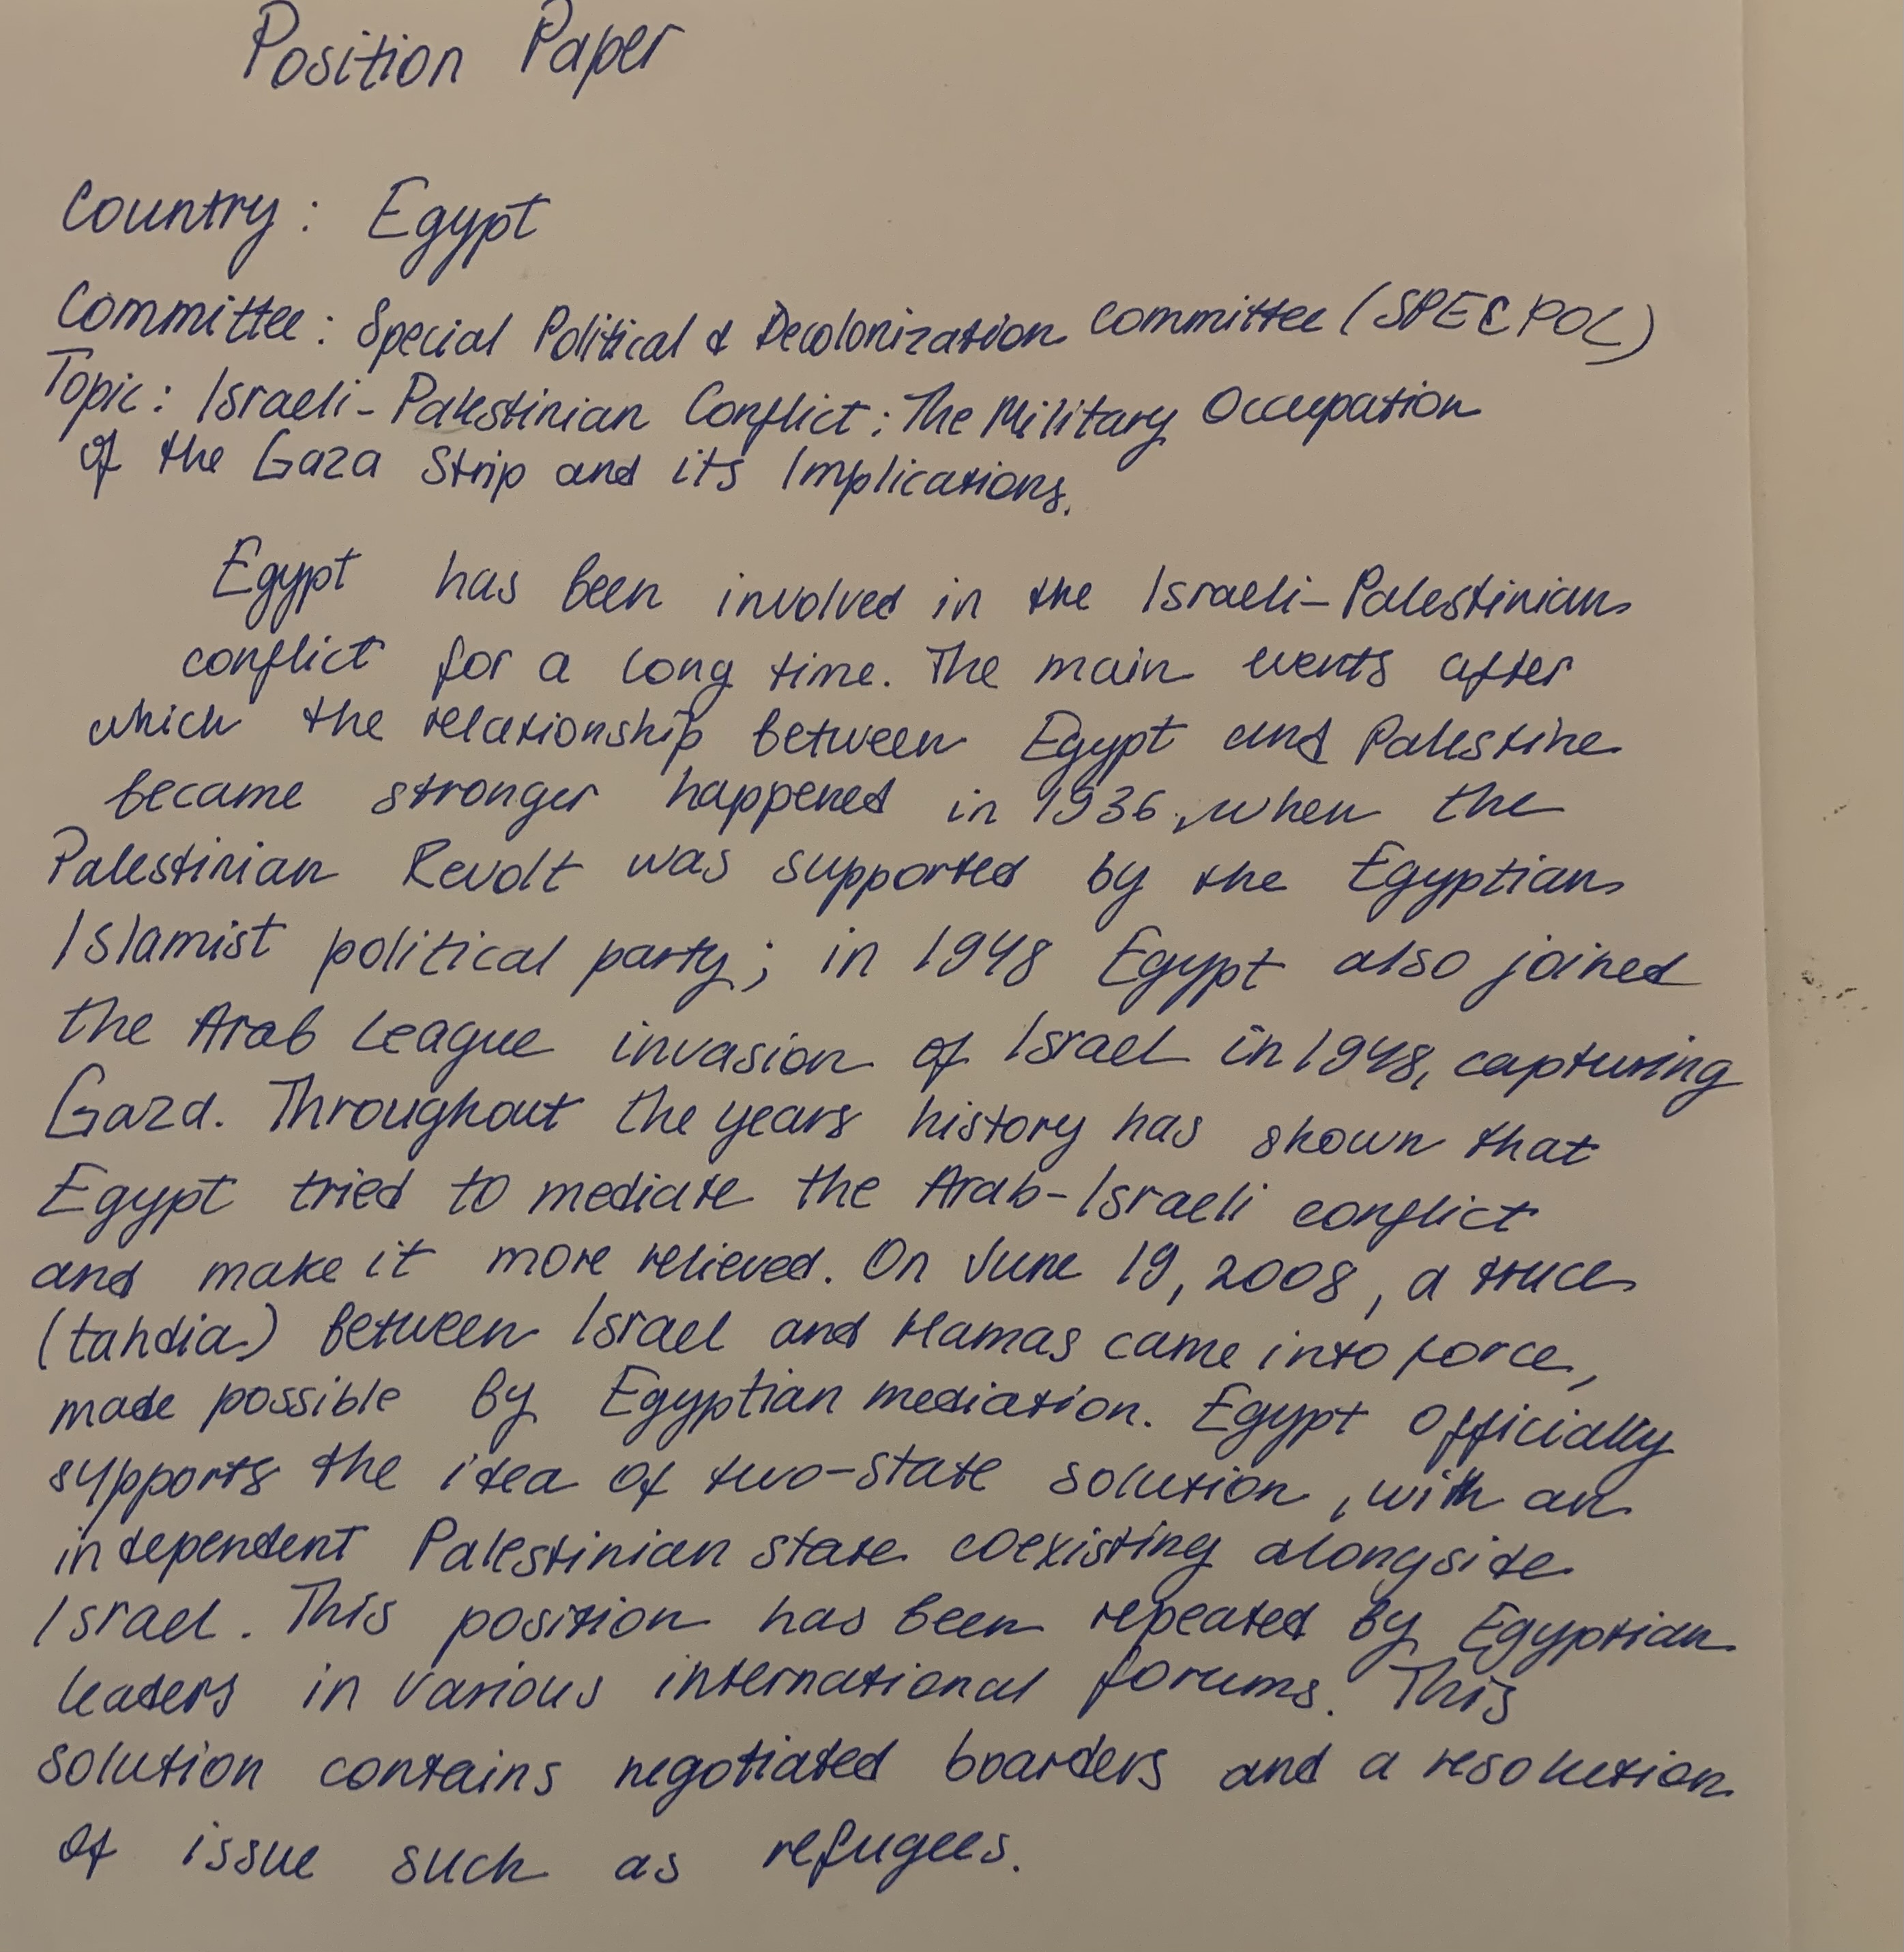 Position Paper
Country: Egypt
Committee: Special Political & Decolonization Committee (SPECPOL)
Topic: Israeli-Palestinian Conflict: The Military Occupation
of the Gaza Strip and its Implications.
Egypt has been involved in the Israeli-Palestinian
conflict for a long time. The main events after
which the relationship between Egypt and Palestine
became stronger happened in 1936, when the
Palestinian Revolt was supported by the Egyptian
Islamist political party; in 1948 Egypt also joined
the Arab League invasion of Israel in 1948, capturing
Gaza. Throughout the years history has shown that
Egypt tried to mediate the Arab-Israeli conflict
and make it more relieved. On June 19, 2008, a truce
(tahdia) between Israel and Hamas came into force,
made possible by Egyptian mediation. Egypt officially
supports the idea of two-state solution, with an
independent Palestinian state coexisting alongside
Israel. This position has been repeated by Egyptian
leaders in various international forums. This
solution contains negotiated boarders and a resolution
of issue such as refugees.